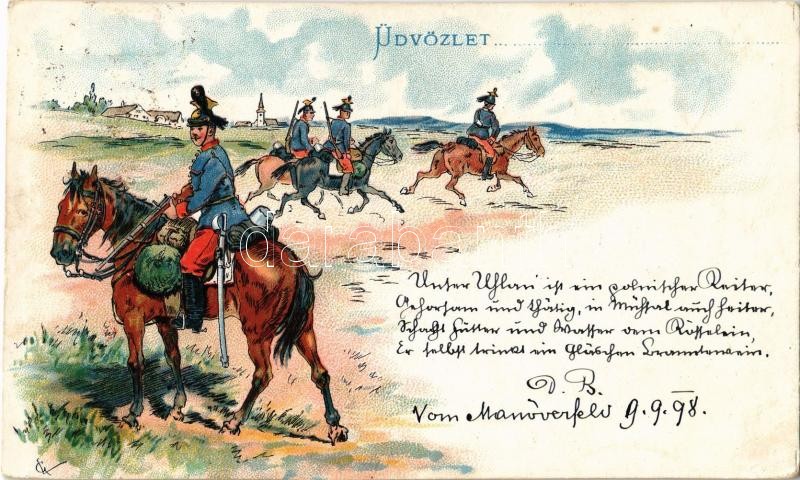 ÜDVÖZLET...
darabanth
Unser Uhlan' ist ein polnischer Reiter,
Gehorsam und thätig, in Mühsal auch heiter,
Schafft Futter und Wasser dem Rösselein,
Er selbst trinkt ein Gläschen Branntewein.
D. B.
Vom Manöverfeld 9.9.98.